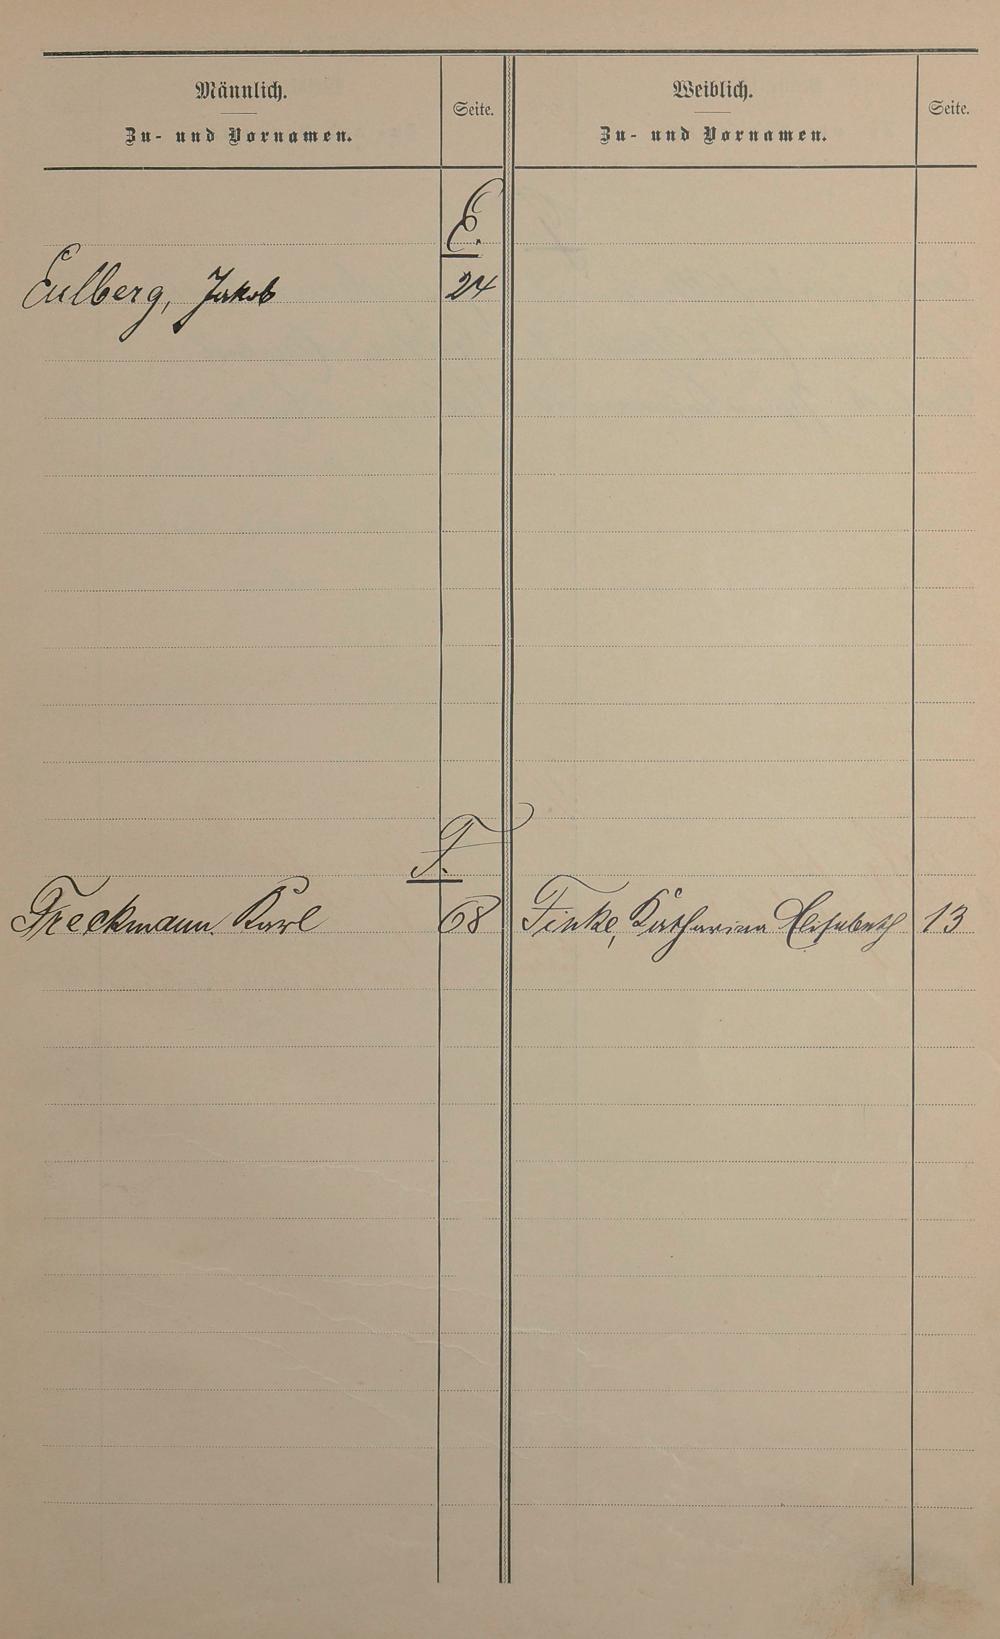 Männlich.
Zu- und Vornamen.
Seite.
Weiblich.
Zu- und Vornamen.
Seite.
E.
Eulberg, Jakob 24
F.
Freckmann Karl 68 Finke, Katharina Elisabeth 13